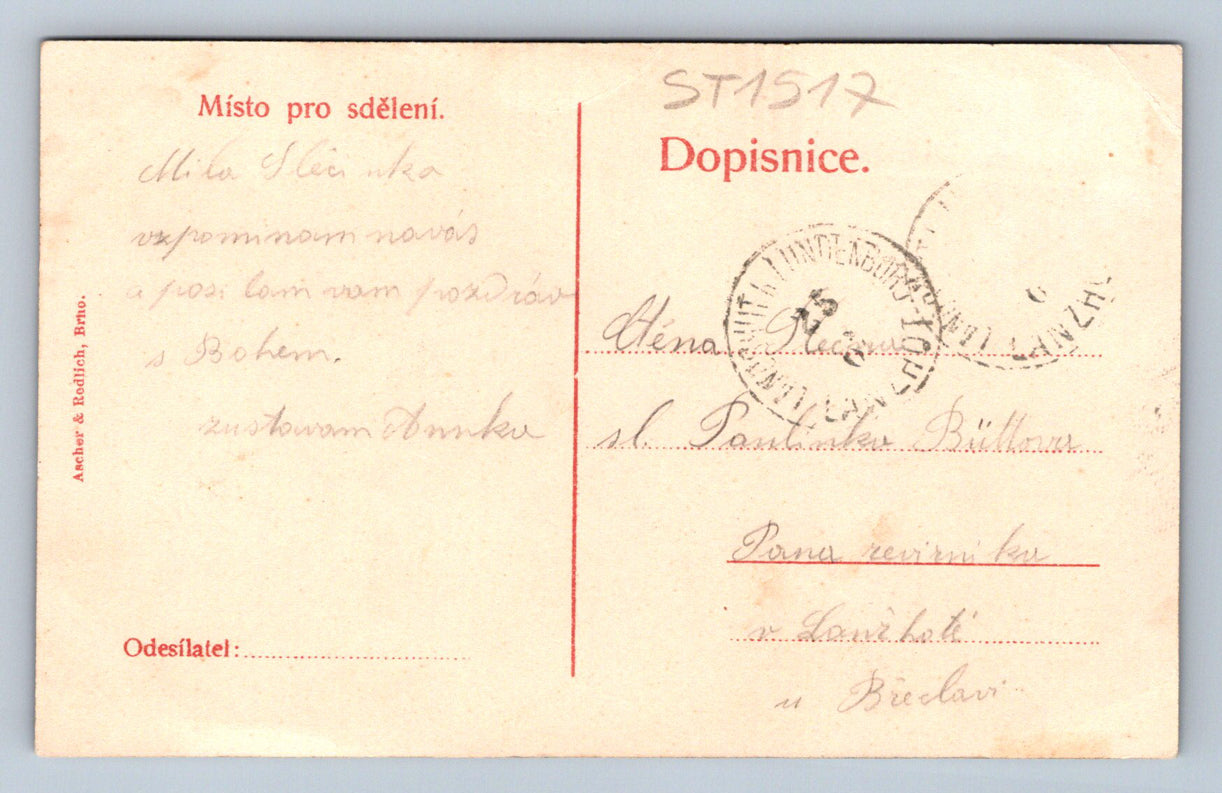 Místo pro sdělení.
Mila Slečinka
vzpominam navás
a posilam vam pozdráv
s Bohem.
zustavam Annka
Ascher & Redlich, Brno.
Odesílatel:
ST1517
Dopisnice.
LUNDENBURG
25
6
6
Ctěna Slečna
sl. Paulinka Büttova
Pana revirnika
v Lanžhotě
u Břeclavi